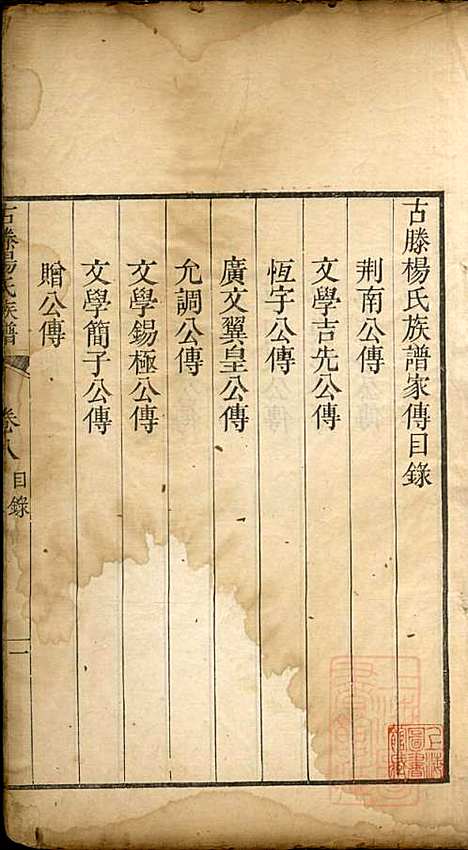 古滕楊氏族譜家傳目錄
荆南公傳
文學吉先公傳
恆宇公傳
廣文翼皇公傳
允調公傳
文學錫極公傳
文學簡子公傳
贈公傳
古滕楊氏族譜
卷八
目錄
一